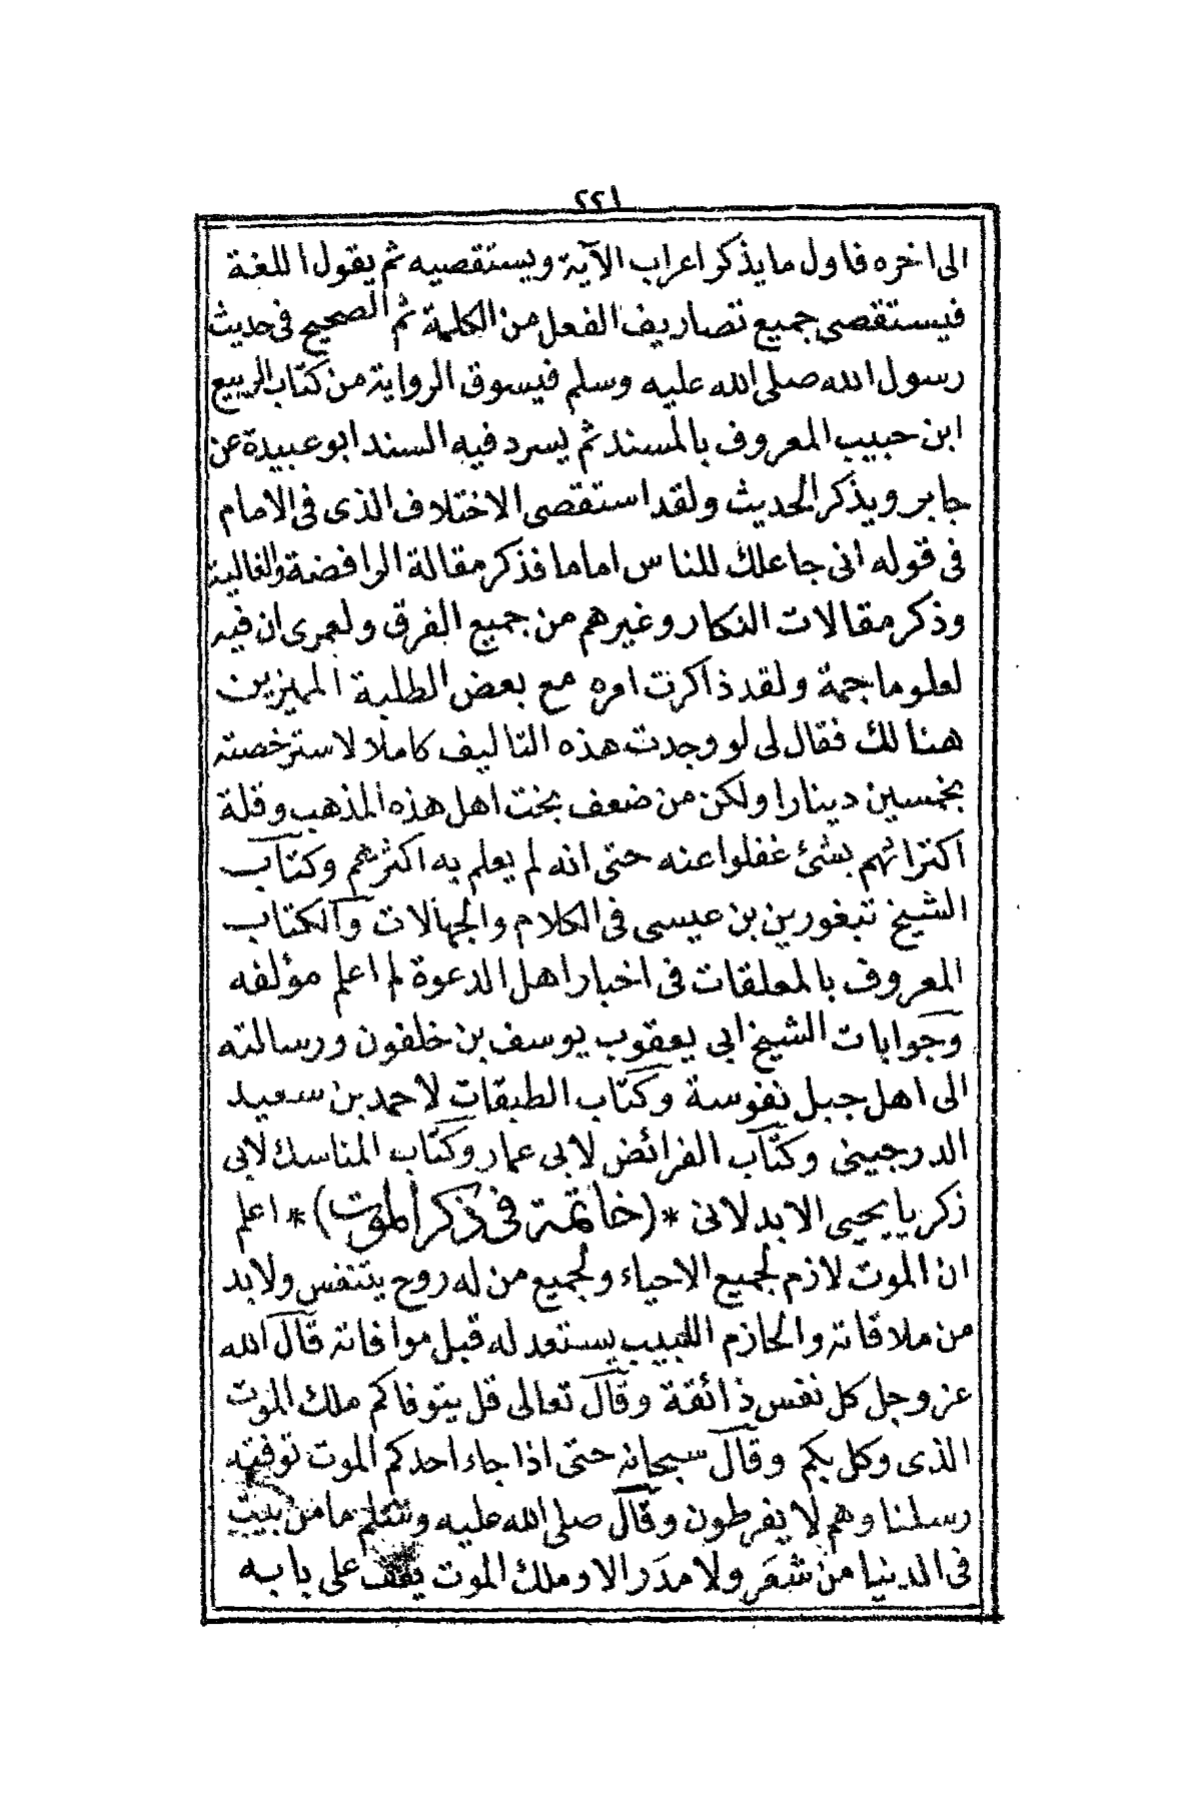 ٢٢١
الى اخره فاول ما يذكر اعراب الآية ويستقصيه ثم يقول اللغة
فيستقصى جميع تصاريف الفعل من الكلمة ثم الصحيح فى حديث
رسول الله صلى الله عليه وسلم فيسوق الرواية من كتاب الربيع
ابن حبيب المعروف بالمسند ثم يسرد فيه السند ابو عبيدة عن
جابر ويذكر الحديث ولقد استقصى الاختلاف الذى فى الامام
فى قوله انى جاعلك للناس اماما فذكر مقالة الرافضة والغالية
وذكر مقالات النكار وغيرهم من جميع الفرق ولعمرى ان فيه
لعلوما جمة ولقد ذاكرت امره مع بعض الطلبة المميزين
هنالك فقال لى لو وجدت هذه التاليف كاملا لاسترخصته
بخمسين دينارا ولكن من ضعف بخت اهل هذه المذهب وقلة
اكتراثهم بشئ غفلوا عنه حتى انه لم يعلم به اكثرهم وكتاب
الشيخ تبغورين بن عيسى فى الكلام والجهالات والكتاب
المعروف بالمعلقات فى اخبار اهل الدعوة لم اعلم مؤلفه
وجوابات الشيخ ابى يعقوب يوسف بن خلفون ورسالته
الى اهل جبل نفوسة وكتاب الطبقات لاحمد بن سعيد
الدرجينى وكتاب الفرائض لابى عمار وكتاب المناسك لابى
زكريا يحيى الابدلانى *(خاتمة فى ذكر الموت)* اعلم
ان الموت لازم لجميع الاحياء ولجميع من له روح يتنفس ولابد
من ملاقاته والحازم اللبيب يستعد له قبل موافاته قال الله
عز وجل كل نفس ذائقة وقال تعالى قل يتوفاكم ملك الموت
الذى وكل بكم وقال سبحانه حتى اذا جاء احدكم الموت توفته
رسلنا وهم لا يفرطون وقال صلى الله عليه وسلم ما من بيت
فى الدنيا من شعَر ولا مدَر الا وملك الموت يقف على بابه